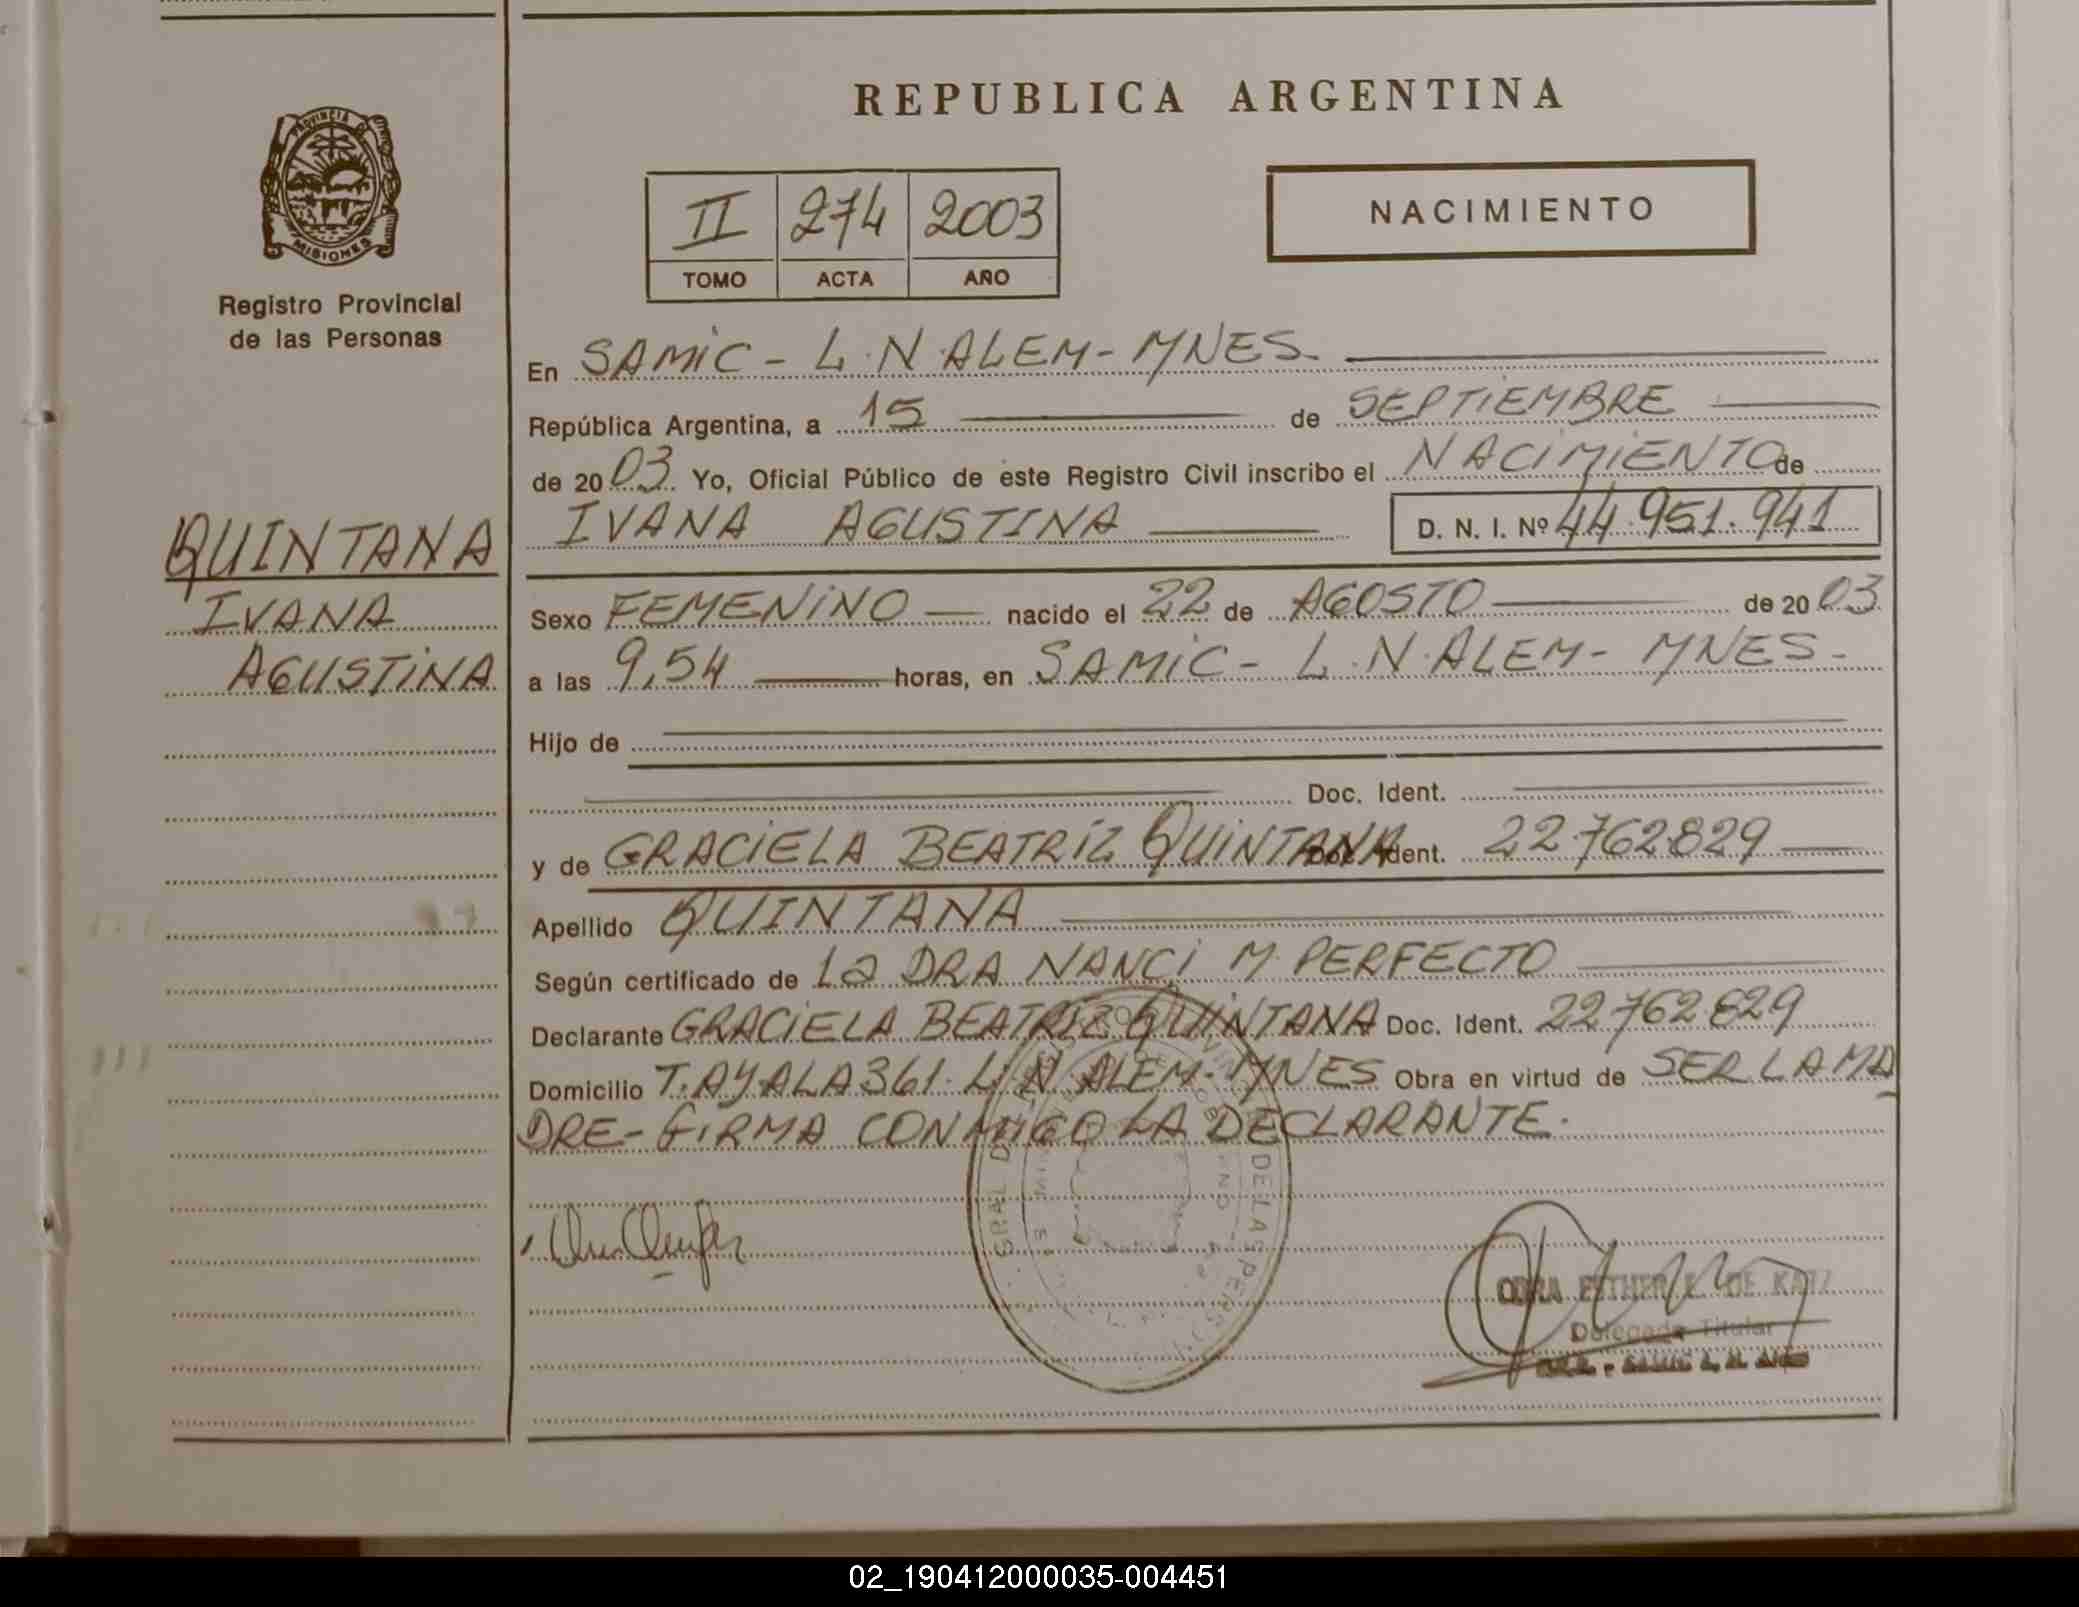 REPUBLICA ARGENTINA
PROVINCIA DE
MISIONES
Registro Provincial
de las Personas
II 274 2003
TOMO ACTA AÑO
NACIMIENTO
En SAMIC - L.N.ALEM - MNES.
República Argentina, a 15 de SEPTIEMBRE
de 2003 Yo, Oficial Público de este Registro Civil inscribo el NACIMIENTO de
IVANA AGUSTINA D. N. I. Nº 44.951.941
QUINTANA
IVANA
AGUSTINA
Sexo FEMENINO nacido el 22 de AGOSTO de 2003
a las 9,54 horas, en SAMIC - L.N.ALEM - MNES.
Hijo de
Doc. Ident.
y de GRACIELA BEATRIZ QUINTANA Doc. Ident. 22.762.829
Apellido QUINTANA
Según certificado de La DRA NANCI M. PERFECTO
Declarante GRACIELA BEATRIZ QUINTANA Doc. Ident. 22.762.829
Domicilio T. AYALA 361. L.N ALEM - MNES Obra en virtud de SER LA MA
DRE - FIRMA CONMIGO LA DECLARANTE.
ESTHER DE KATZ
Delegada Titular
02_190412000035-004451